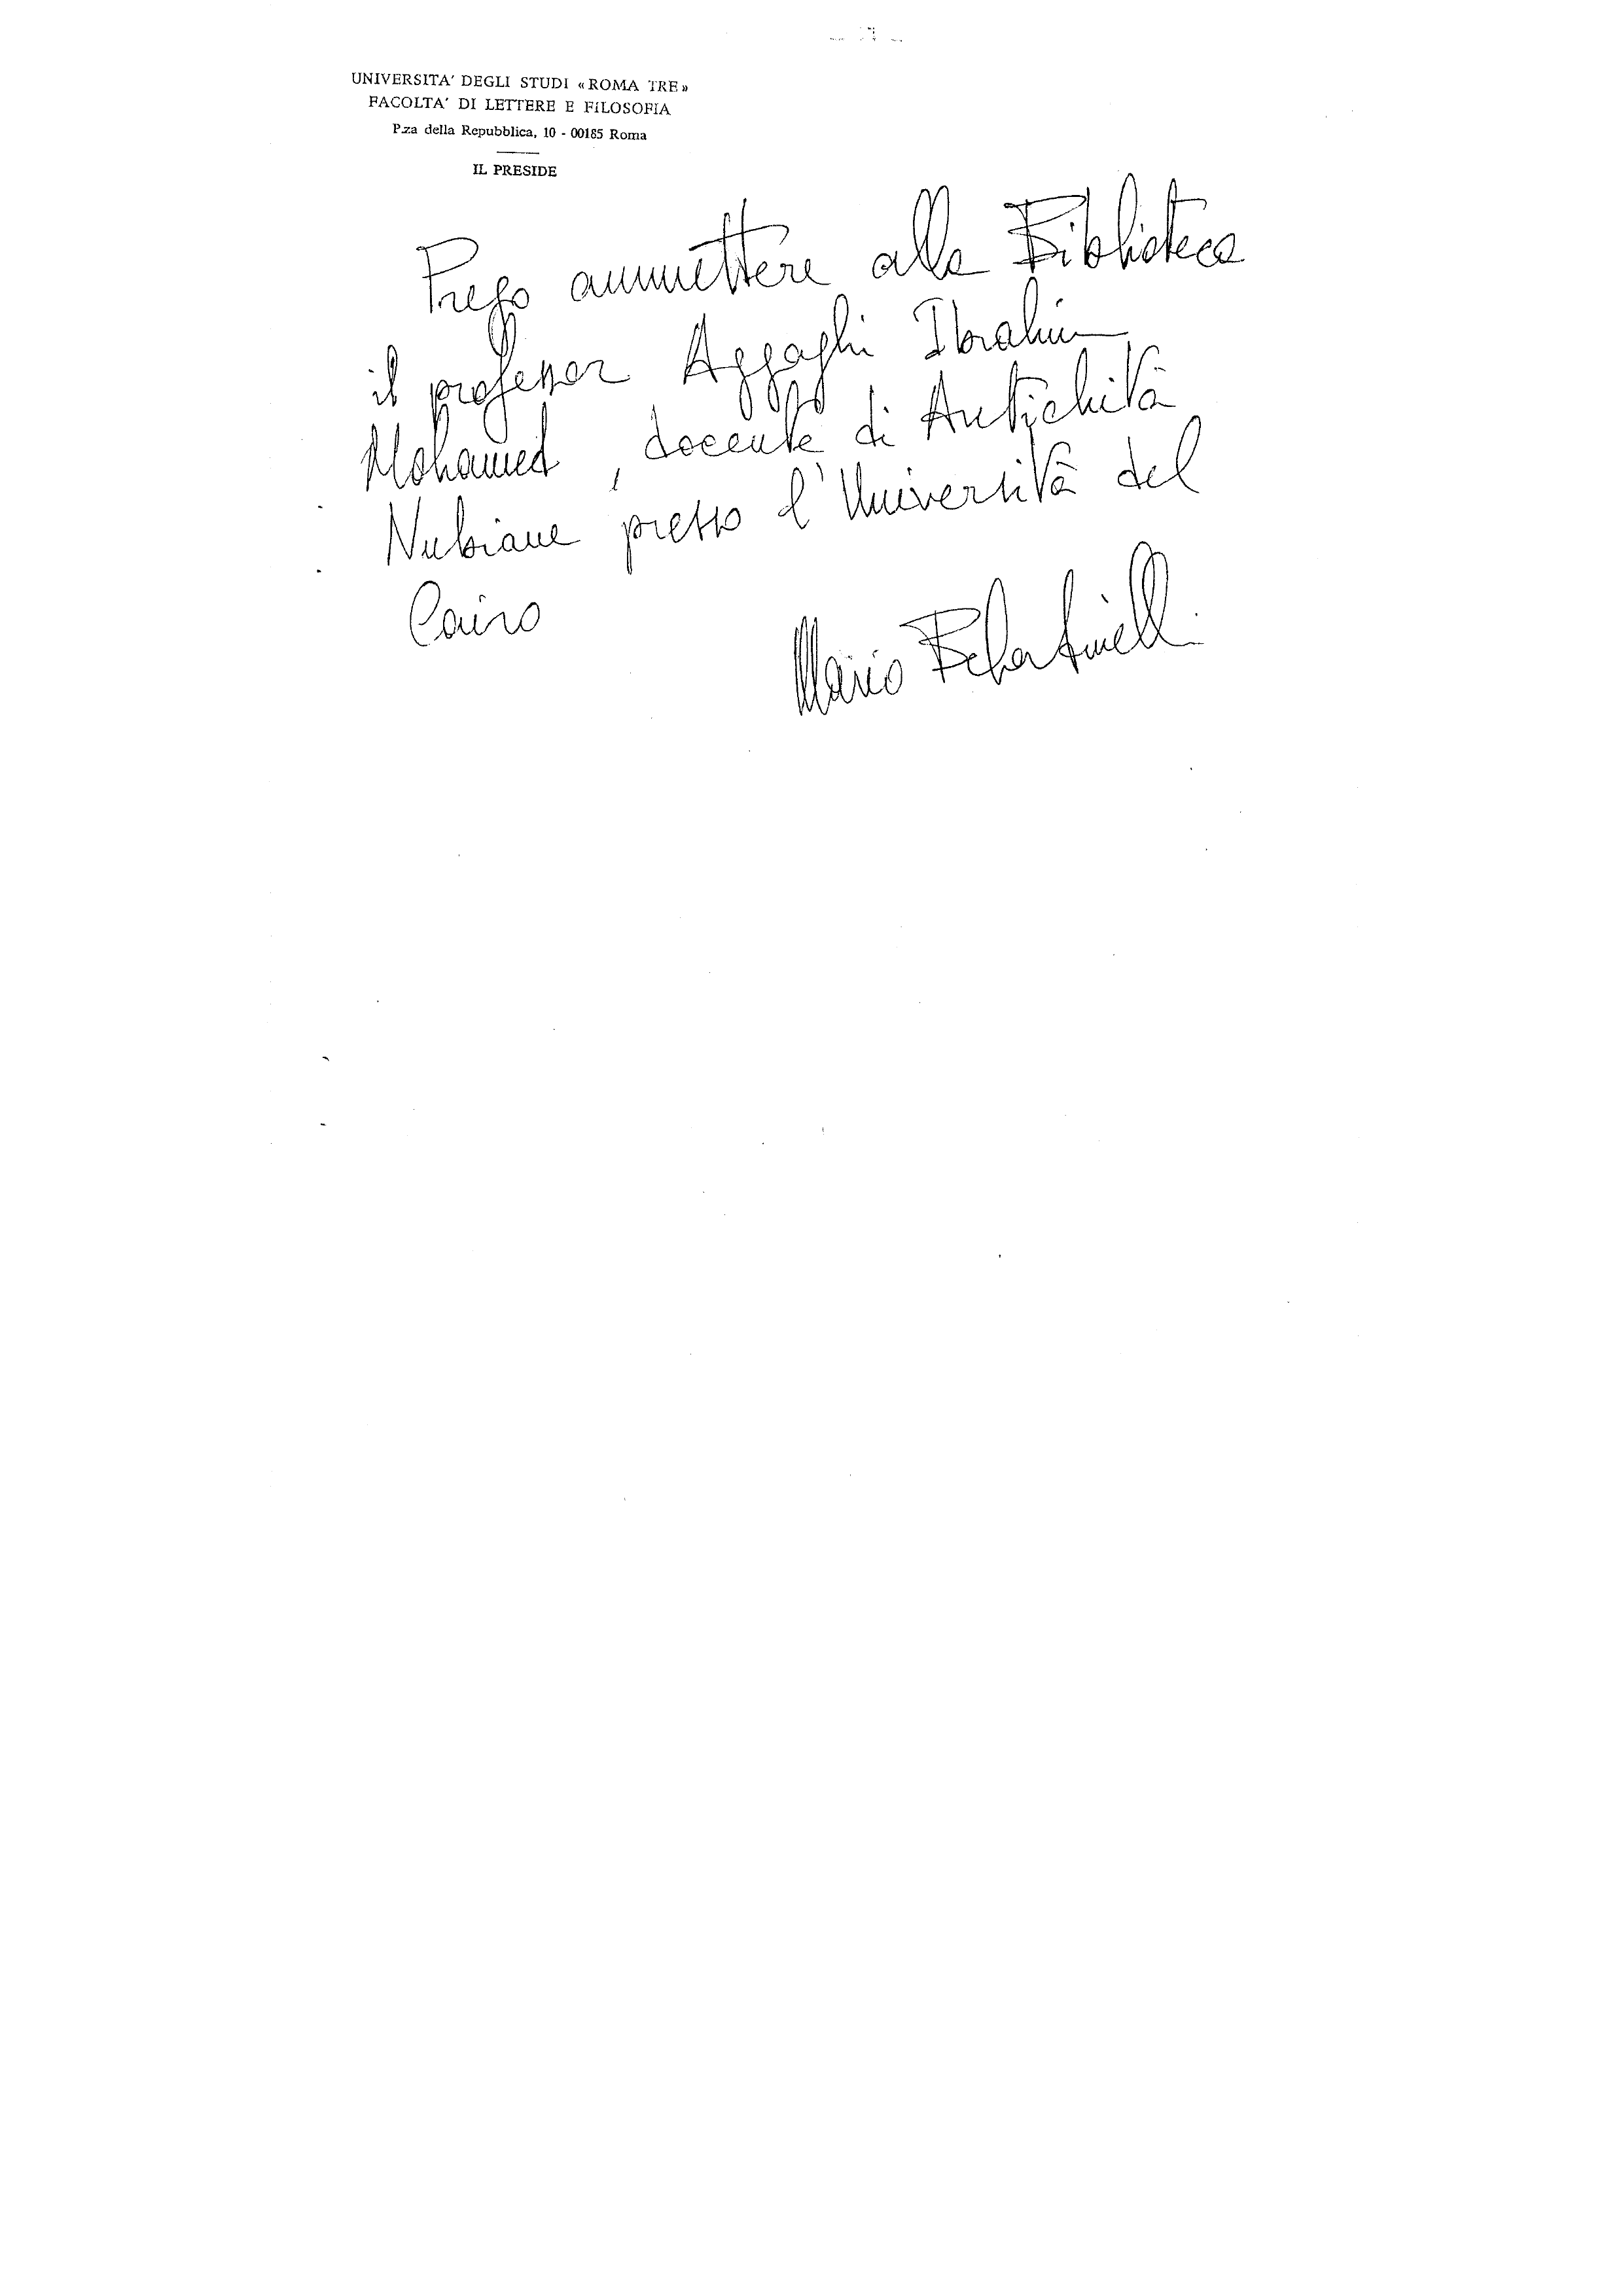 UNIVERSITA' DEGLI STUDI «ROMA TRE»
FACOLTA' DI LETTERE E FILOSOFIA
P.za della Repubblica, 10 - 00185 Roma
IL PRESIDE
Prego ammettere alla Biblioteca
il professor Ibrahim
Mohamed, docente di Antichità
Nubiane presso l'Università del
Cairo
Mario Belardinelli